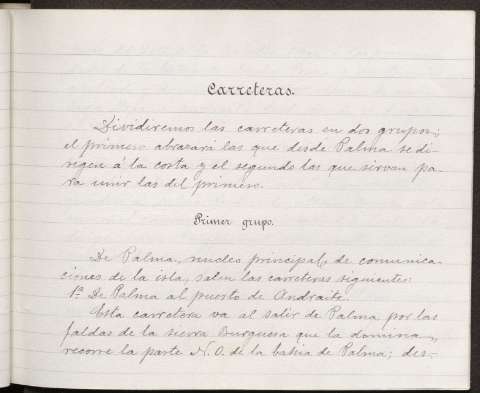 Carreteras.
Dividiremos las carreteras en dos grupos;
el primero abrazará las que desde Palma se di-
rigen á la costa y el segundo las que sirvan pa-
ra unir las del primero.
Primer grupo.
De Palma, nucleo principal, de comunica-
ciones de la isla, salen las carreteras siguientes:
1ª De Palma al puerto de Andraitx.
Esta carretera va al salir de Palma por las
faldas de la sierra Burguesa que la domina,
recorre la parte N.O. de la bahia de Palma; des-